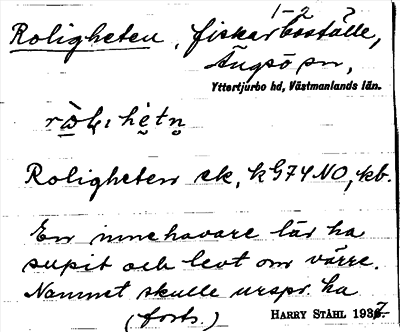 1-2 ?
Roligheten, fiskarboställe,
Ängsö sn,
Yttertjurbo hd, Västmanlands län.
Roligheten ek, kG74NO, kb.
En innehavare lär ha
supit och levt om värre.
Namnet skulle urspr. ha
(forts.) HARRY STÅHL 1937